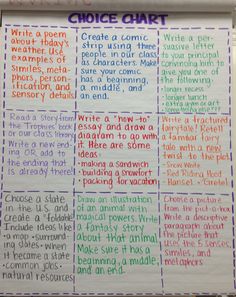 CHOICE CHART
Write a poem
about today's
weather. Use
examples of
similes, meta-
phors, person-
ification, and
sensory details.
Create a comic
strip using three
people in our class
as characters. Make
sure your comic
has a beginning,
a middle, and
an end.
Write a per-
suasive letter
to your principal
convincing him to
give you one of
the following:
• longer recess
• longer lunch
• extra gym or art
Read a story from
the Trophies book
or our class library.
Write a new end-
ing OR add to
the ending that
is already there!
Write a "how-to"
essay and draw a
diagram to go with
it. Here are some
ideas:
• making a sandwich
• building a snowfort
• packing for vacation
Write a fractured
fairytale! Retell
a familiar fairy
tale with a new
twist to the plot
• Snow White
• Red Riding Hood
• Hansel & Gretel
Choose a state
in the U.S. and
create a "foldable"
Include ideas like
• a map • surround-
ing states • When
it became a state
• common jobs •
natural resources
Draw an illustration
of an animal with
magical powers. Write
a fantasy story
about that animal.
Make sure it has a
beginning, a middle,
and an end.
Choose a picture
from the pict-o-box
Write a descriptive
paragraph about
the picture that
uses the 5 senses,
similes, and
metaphors